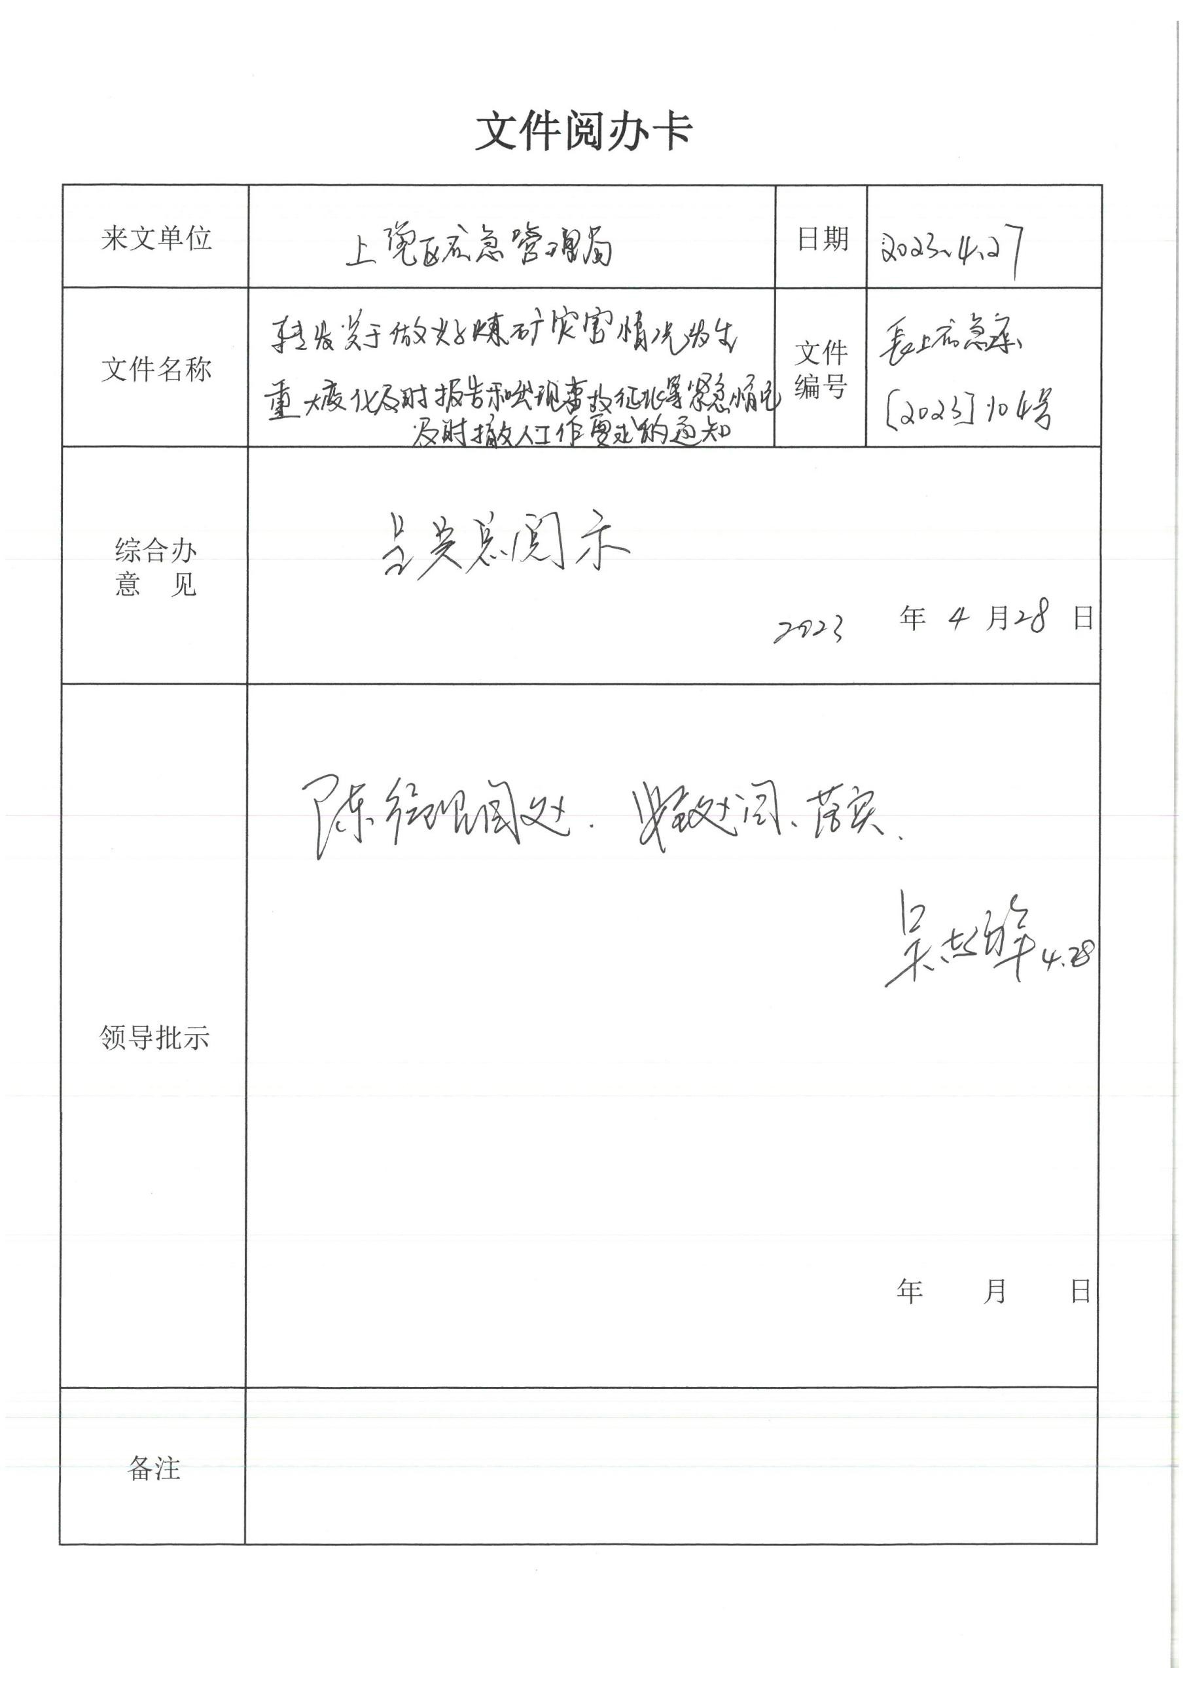 文件阅办卡
来文单位
上党区应急管理局
日期
2023.4.27
文件名称
转发关于做好煤矿灾害情况发生
重大变化及时报告和出现事故征兆等紧急情况
及时撤人工作要求的通知
文件
编号
长上应急字
〔2023〕104号
综合办
意 见
吴总阅示
2023 年 4 月 28 日
领导批示
陈经理阅处. 阅、落实.
吴志 4.28
年 月 日
备注